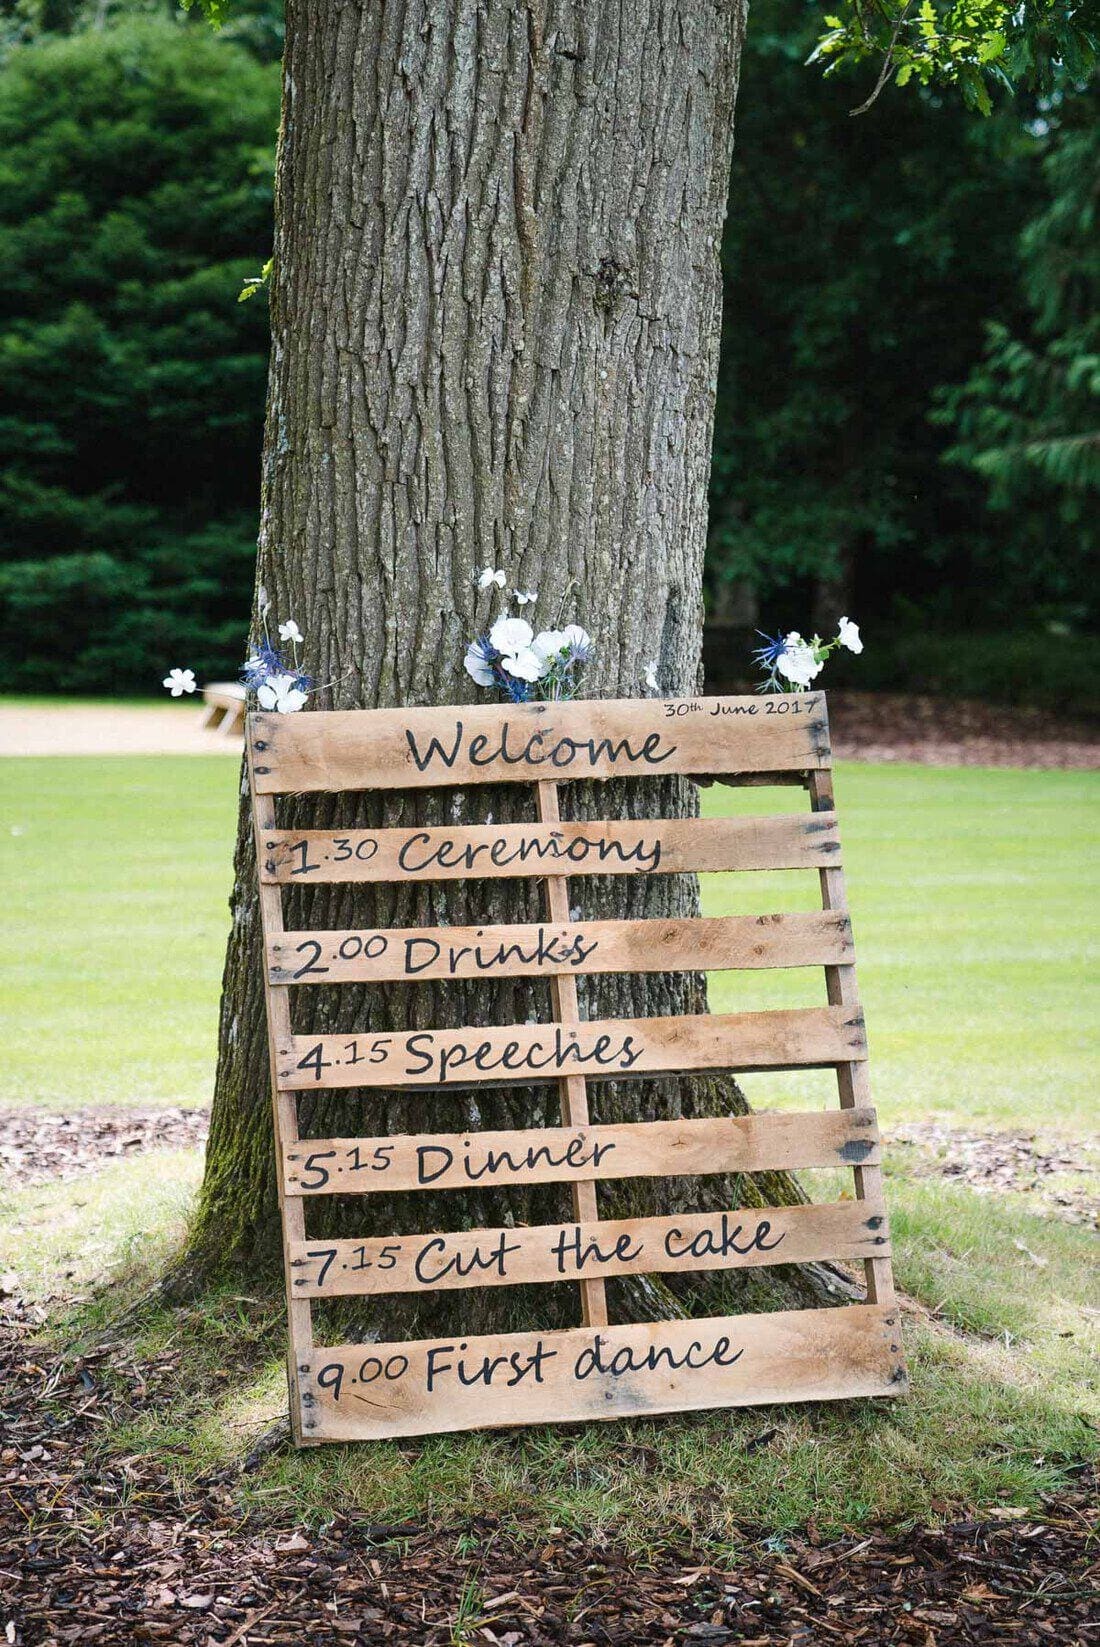 30th June 2017
Welcome
1.30 Ceremony
2.00 Drinks
4.15 Speeches
5.15 Dinner
7.15 Cut the cake
9.00 First dance